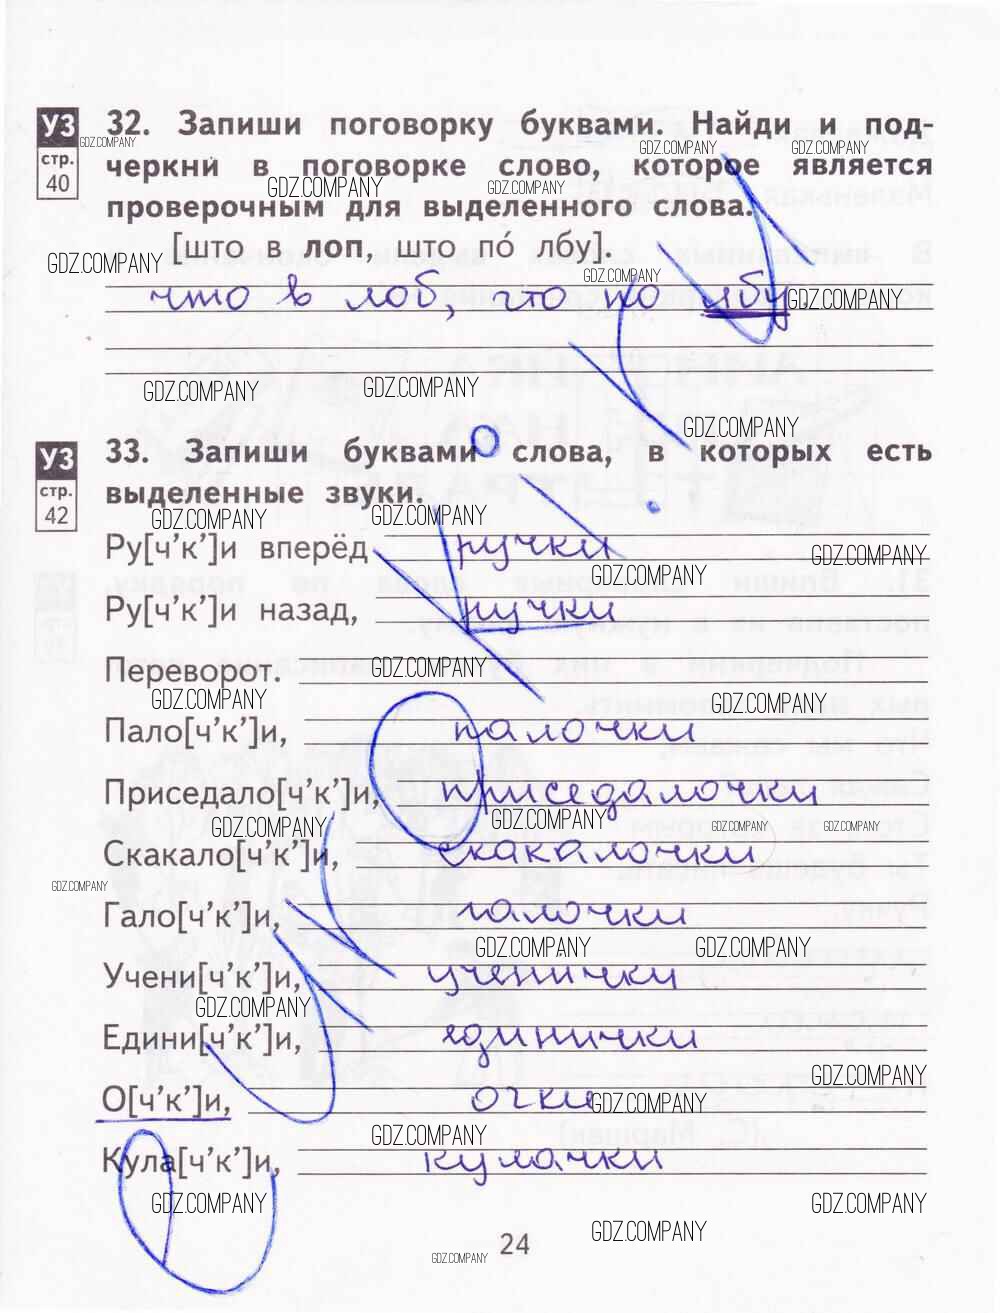 УЗ
стр.
40
32. Запиши поговорку буквами. Найди и под-
черкни в поговорке слово, которое является
проверочным для выделенного слова.
[што в лоп, што по́ лбу].
что в лоб, что по лбу.
УЗ
стр.
42
33. Запиши буквами слова, в которых есть
выделенные звуки.
Ру[ч’к’]и вперёд ручки
Ру[ч’к’]и назад, ручки
Переворот.
Пало[ч’к’]и, палочки
Приседало[ч’к’]и, приседалочки
Скакало[ч’к’]и, скакалочки
Гало[ч’к’]и, галочки
Учени[ч’к’]и, ученички
Едини[ч’к’]и, единички
О[ч’к’]и, очки
Кула[ч’к’]и, кулачки
24
GDZ.COMPANY